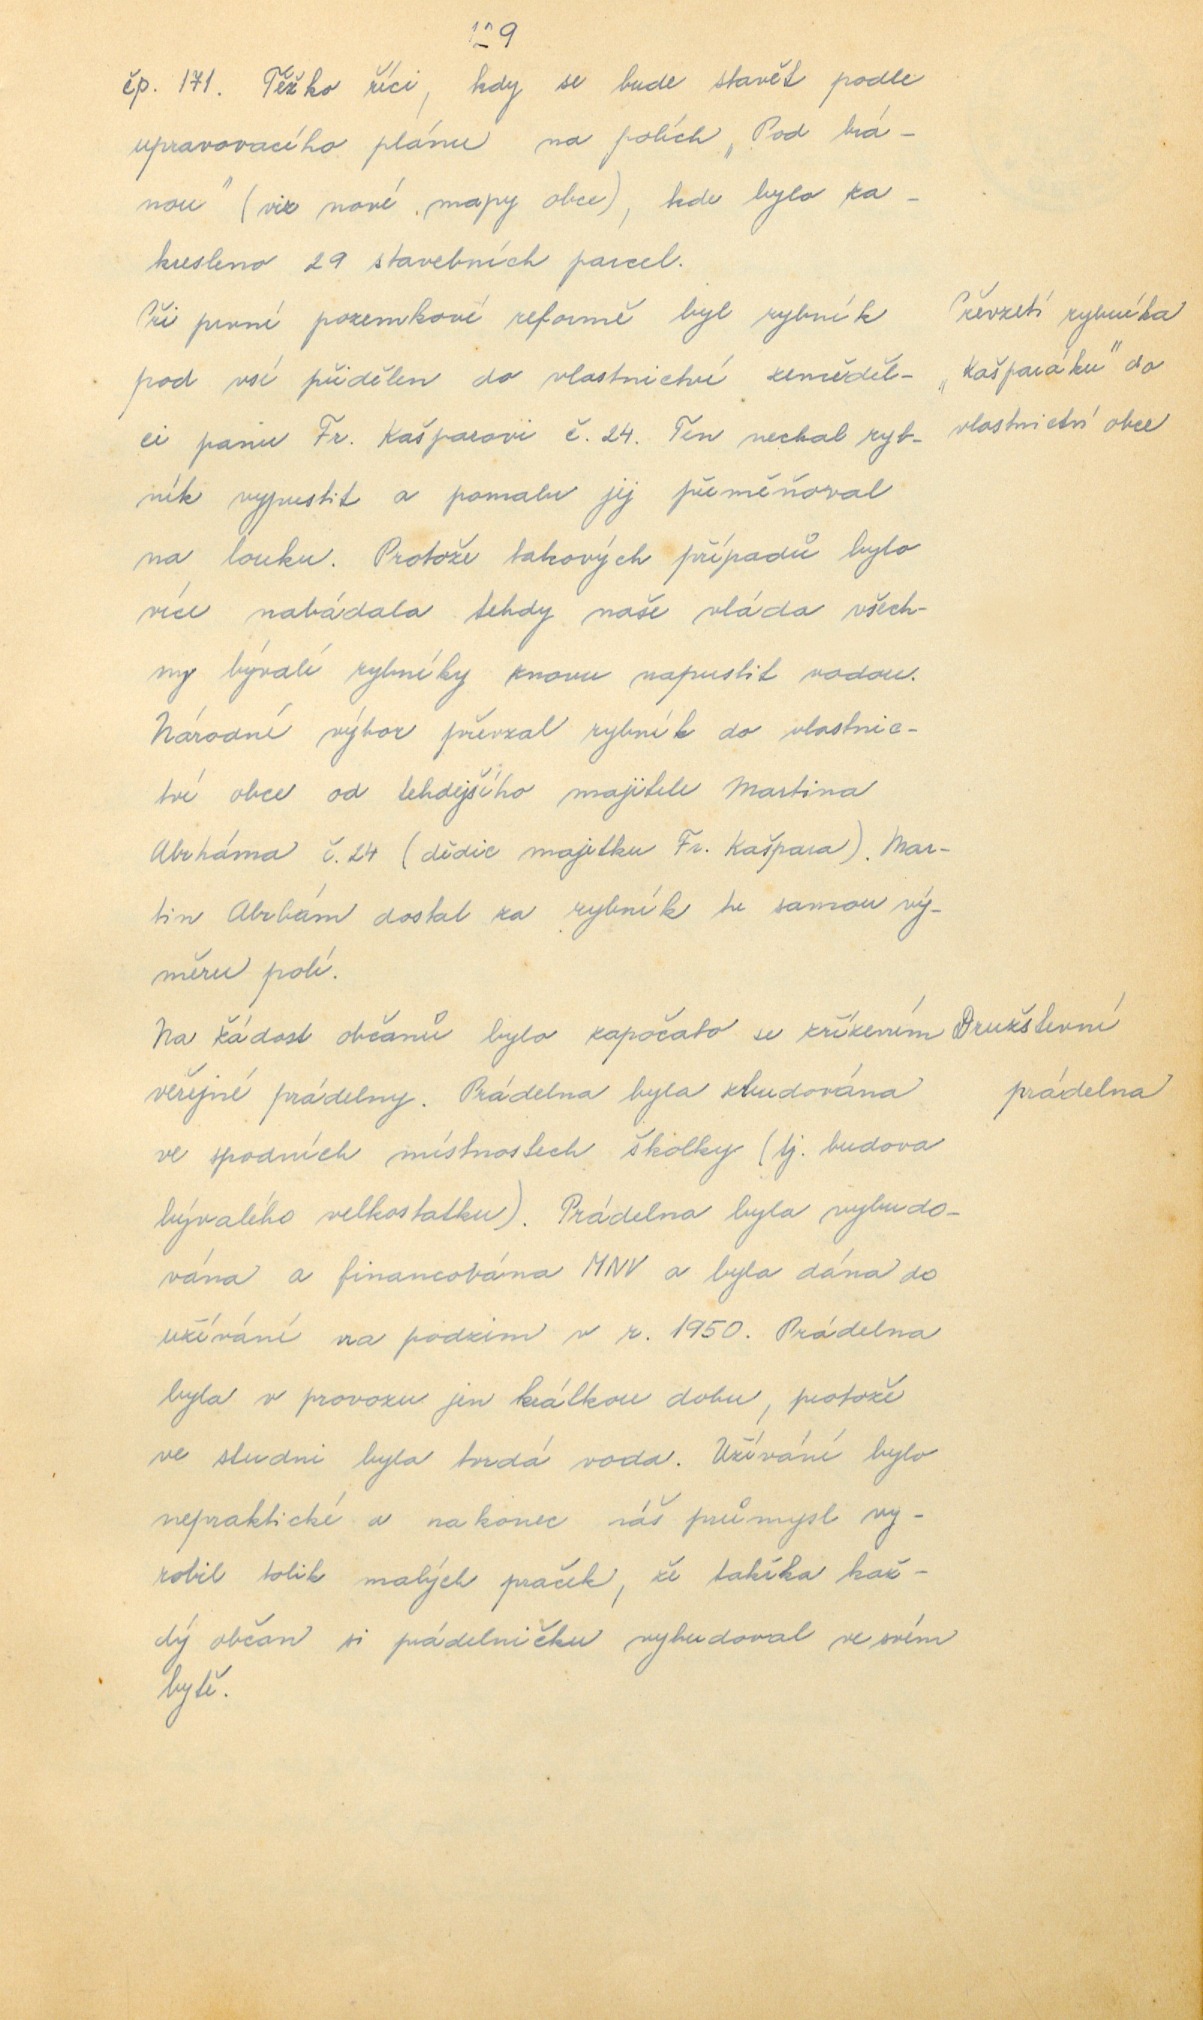 9
čp. 171. Těžko říci, kdy se bude stavět podle
upravovacího plánu na polích „Pod brá-
nou" (viz nové mapy obce), kde bylo za-
kresleno 29 stavebních parcel.
Při první pozemkové reformě byl rybník
pod vsí přidělen do vlastnictví zeměděl-
ci panu Fr. Kašparovi č. 24. Ten nechal ryb-
ník vypustit a pomalu jej přeměňoval
na louku. Protože takových případů bylo
více nabádala tehdy naše vláda všech-
ny bývalé rybníky znovu napustit vodou.
Národní výbor převzal rybník do vlastnic-
tví obce od tehdejšího majitele Martina
Abrháma č. 24 (dědic majetku Fr. Kašpara). Mar-
tin Abrhám dostal za rybník tu samou vý-
měru polí.
Převzetí rybníka
„Kašparáku" do
vlastnictví obce
Na žádost občanů bylo započato se zřízením
veřejné prádelny. Prádelna byla zbudována
ve spodních místnostech školky (tj. budova
bývalého velkostatku). Prádelna byla vybudo-
vána a financována MNV a byla dána do
užívání na podzim v r. 1950. Prádelna
byla v provozu jen krátkou dobu, protože
ve studni byla tvrdá voda. Užívání bylo
nepraktické a nakonec náš průmysl vy-
robil tolik malých praček, že takřka kaž-
dý občan si prádelničku vybudoval ve svém
bytě.
Družstevní
prádelna